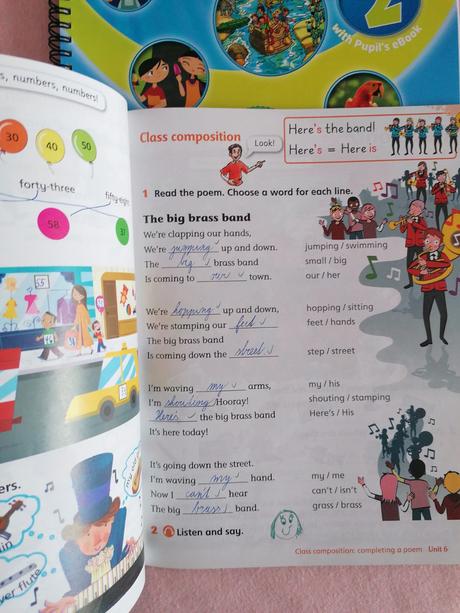 2
with Pupil's eBook
s, numbers, numbers!
30
40
50
forty-three
fifty-eight
58
31
Class composition
Look!
Here's the band!
Here's = Here is
1 Read the poem. Choose a word for each line.
The big brass band
We're clapping our hands,
We're jumping up and down. jumping / swimming
The big brass band small / big
Is coming to our town. our / her
We're hopping up and down, hopping / sitting
We're stamping our feet feet / hands
The big brass band
Is coming down the street step / street
I'm waving my arms, my / his
I'm shouting Hooray! shouting / stamping
Here's the big brass band Here's / His
It's here today!
It's going down the street.
I'm waving my hand. my / me
Now I can't hear can't / isn't
The big brass band. grass / brass
2 Listen and say.
Class composition: completing a poem Unit 6
ers.
my
ver flute